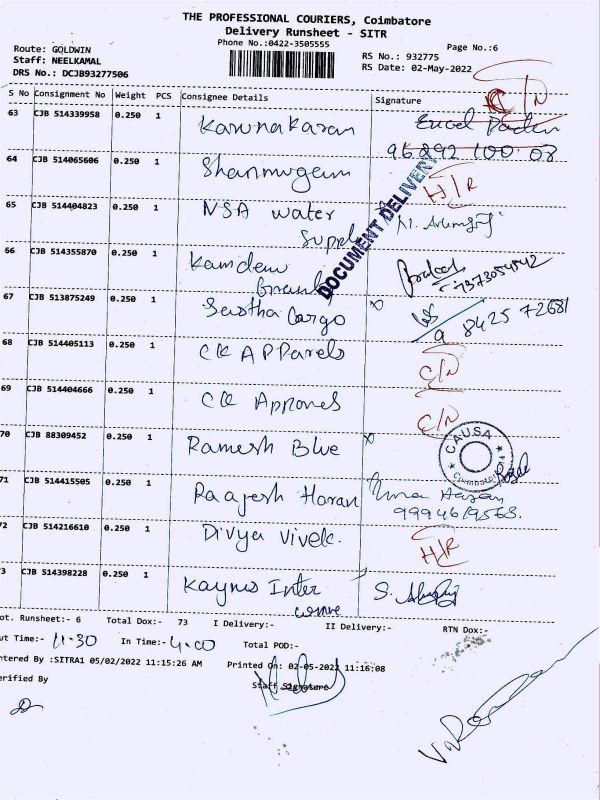 THE PROFESSIONAL COURIERS, Coimbatore
Delivery Runsheet - SITR
Phone No.:0422-3505555
Page No.:6
Route: GOLDWIN
Staff: NEELKAMAL
DRS No.: DCJB93277506
RS No.: 932775
RS Date: 02-May-2022
S No Consignment No Weight PCS Consignee Details Signature
C/N
63 CJB 514339958 0.250 1 Karunakaran
96892 100 03
64 CJB 514065606 0.250 1 Shanmugam H/R
65 CJB 514404823 0.250 1 NSA water Supply
DOCUMENT DELIVERY
66 CJB 514355870 0.250 1 Kamdenu
7373054542
67 CJB 513875249 0.250 1 Sastha Cargo x
8425 72681
68 CJB 514405113 0.250 1 CK APParels C/N
69 CJB 514404666 0.250 1 CK C/N
70 CJB 88309452 0.250 1 Ramesh Blue x
CAUSA
71 CJB 514415505 0.250 1 Raajesh Haran
72 CJB 514216610 0.250 1 Divya Vivek. H/R
73 CJB 514398228 0.250 1 Inter
ot. Runsheet:- 6 Total Dox:- 73 I Delivery:- II Delivery:- RTN Dox:-
ut Time:- 11.30 In Time:- 4.00 Total POD:-
ntered By :SITRA1 05/02/2022 11:15:26 AM Printed On: 02-05-2022 11:16:08
erified By Staff Signature